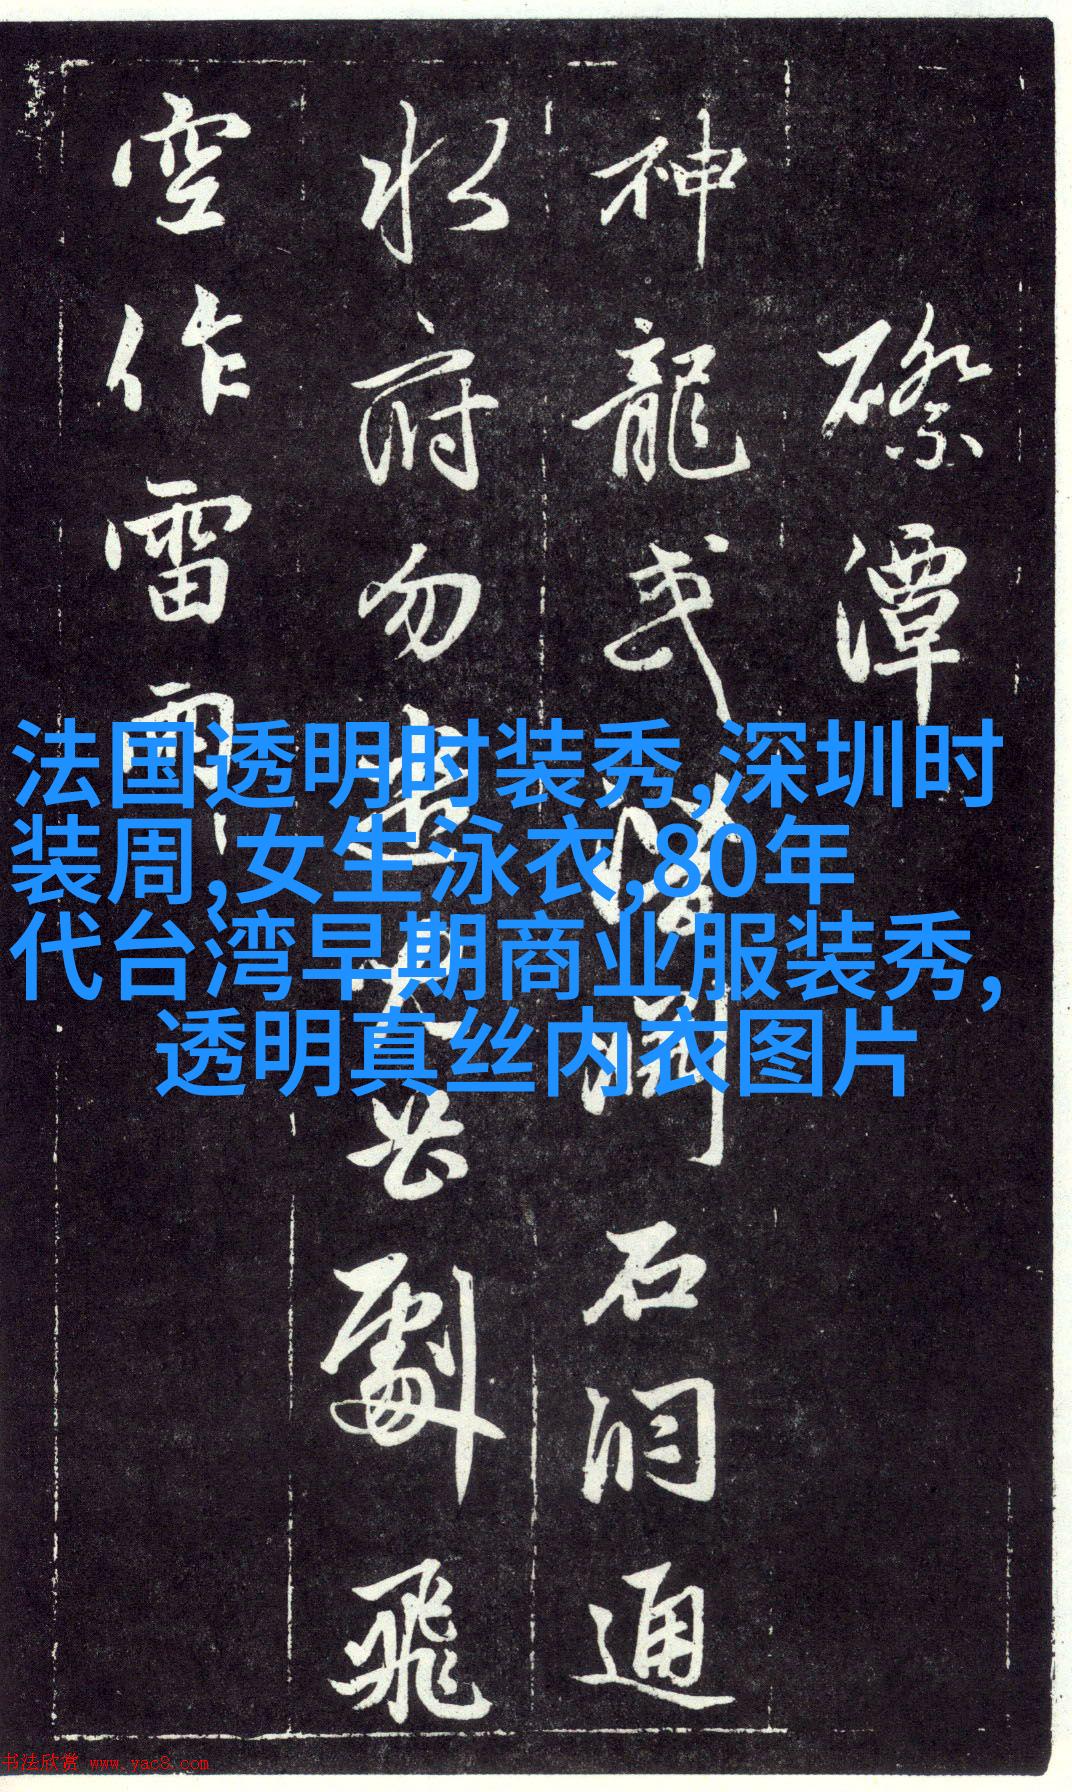 潭
神龍或潛石洞通
水府勿遣劇飛
空作雷雨
法国透明时装秀,深圳时
装周,女生泳衣,80年
代台湾早期商业服装秀,
透明真丝内衣图片
书法欣赏 www.yac8.com